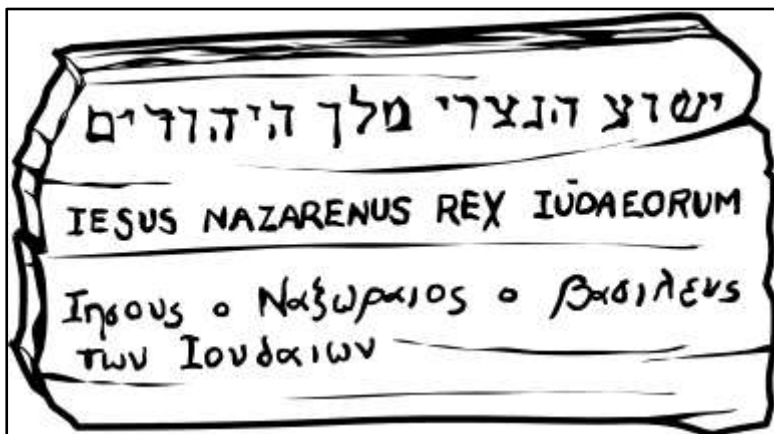 ישוע הנצרי מלך היהודים
IESUS NAZARENUS REX IŪDAEORUM
Ιησους ο Ναξωραιος ο βασιλευς
των Ιουδαιων